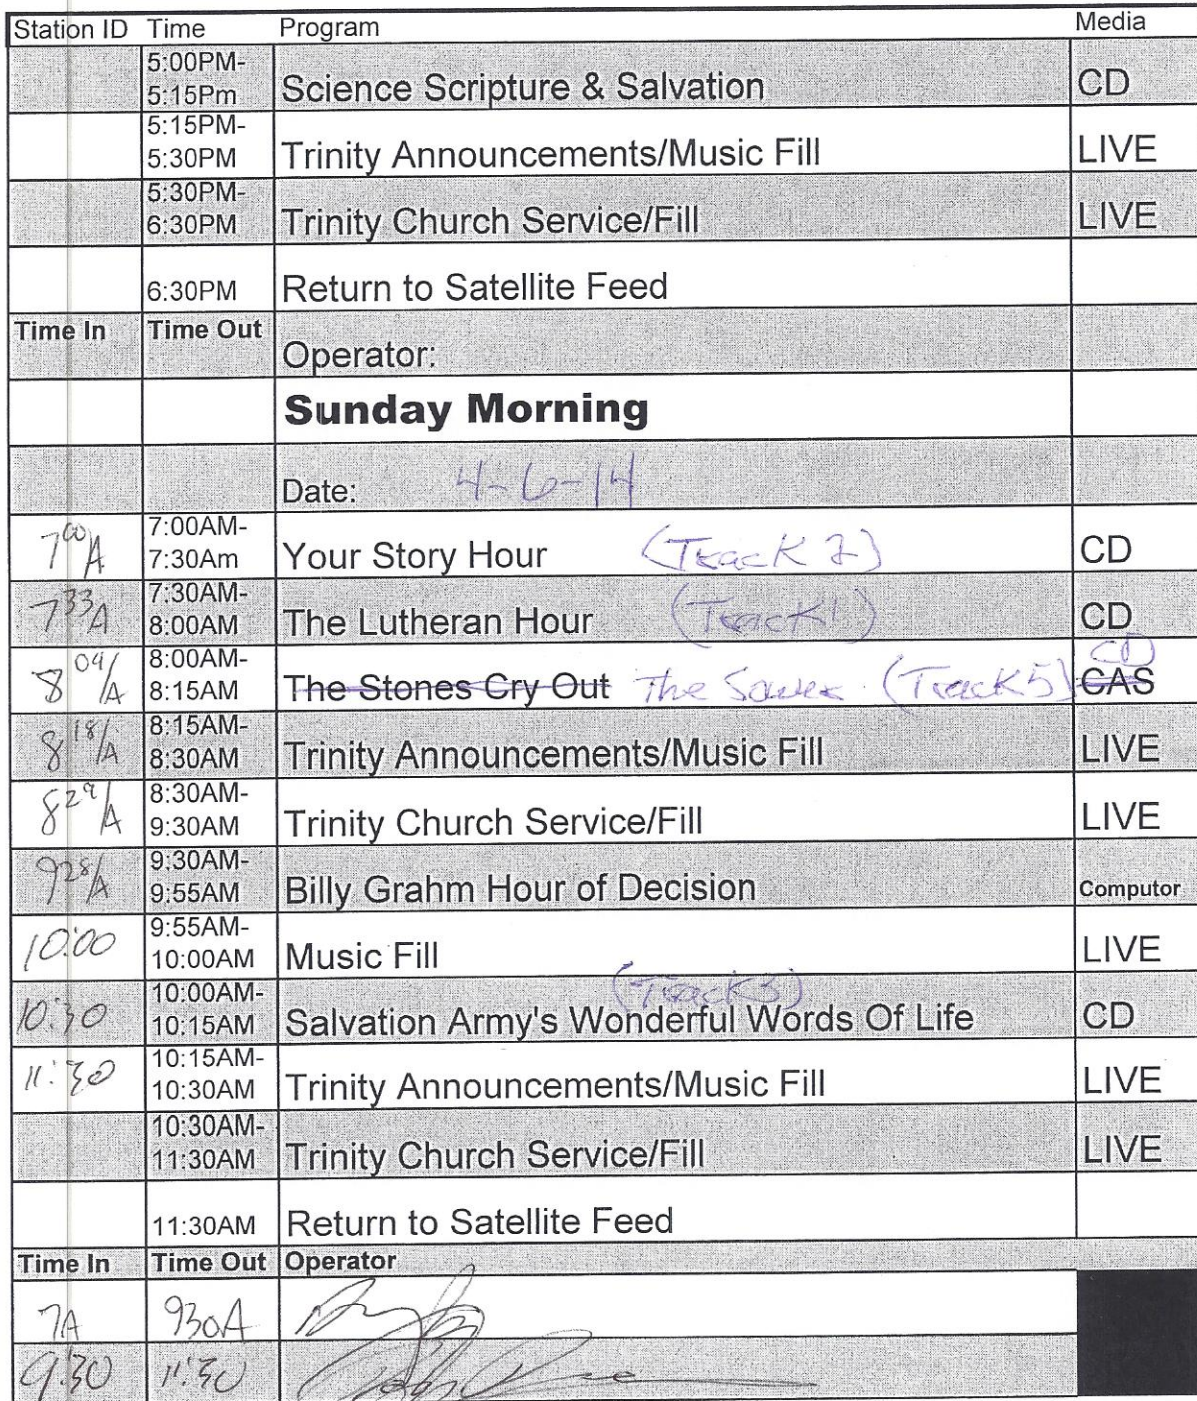 Station ID Time Program Media
5:00PM-
5:15Pm Science Scripture & Salvation CD
5:15PM-
5:30PM Trinity Announcements/Music Fill LIVE
5:30PM-
6:30PM Trinity Church Service/Fill LIVE
6:30PM Return to Satellite Feed
Time In Time Out
Operator:
Sunday Morning
Date: 4-6-14
7:00AM-
7 00 A 7:30Am Your Story Hour (Track 2) CD
7:30AM-
7 33 A 8:00AM The Lutheran Hour (Track 1) CD
8:00AM- CD
8 04/A 8:15AM The Stones Cry Out The Sower (Track 5) CAS
8:15AM-
8 18/A 8:30AM Trinity Announcements/Music Fill LIVE
8:30AM-
8 29/A 9:30AM Trinity Church Service/Fill LIVE
9:30AM-
9 28/A 9:55AM Billy Grahm Hour of Decision Computor
9:55AM-
10:00 10:00AM Music Fill LIVE
10:00AM- (Track 3)
10:30 10:15AM Salvation Army's Wonderful Words Of Life CD
10:15AM-
11:30 10:30AM Trinity Announcements/Music Fill LIVE
10:30AM-
11:30AM Trinity Church Service/Fill LIVE
11:30AM Return to Satellite Feed
Time In Time Out Operator
7A 930A
9:30 11:30